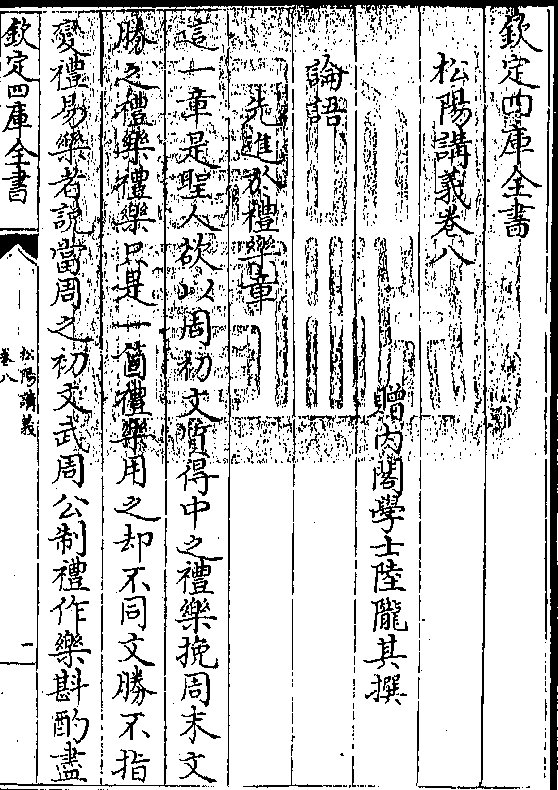 欽定四庫全書
松陽講義卷八
贈內閣學士陸隴其撰
論語
先進於禮樂章
這一章是聖人欲以周初文質得中之禮樂挽周末文
勝之禮樂禮樂只是一箇禮樂用之却不同文勝不指
變禮易樂者說當周之初文武周公制禮作樂斟酌盡
欽定四庫全書
松陽講義
卷八
一